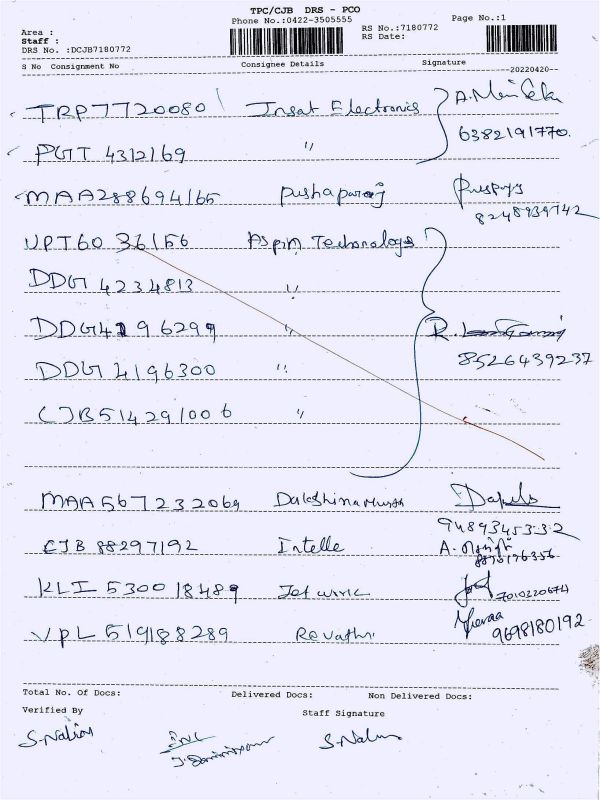 TPC/CJB DRS - PCO
Phone No.:0422-3505555
Page No.:1
Area :
Staff :
DRS No. :DCJB7180772
RS No.:7180772
RS Date:
S No Consignment No Consignee Details Signature
20220420
TRP7720080 Insat Electronics
6382191770
PGT 4312169 "
MAA288694165 pushaparaj
8248939742
UPT60 36156 Aspin
DDG 4234813 "
DDG4196299 "
8526439237
DDG 4196300 "
CJB514291006 "
MAA567232069
9489345332
CJB 88297192 Intelle A.
8870176356
KLI 530018489
7010220674
VPL 519188289 Revathi
9698180192
Total No. Of Docs: Delivered Docs: Non Delivered Docs:
Verified By Staff Signature
S. S.